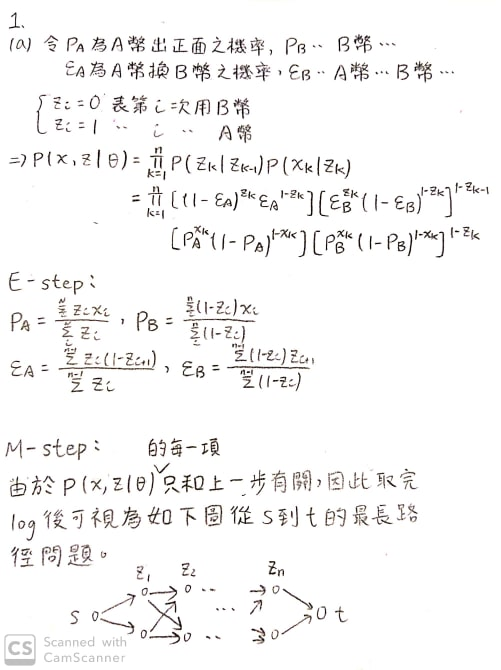 1.
(a) 令 P_A 為 A 幣出正面之機率, P_B ‥ B 幣 ⋯
ε_A 為 A 幣換 B 幣之機率, ε_B ‥ A 幣 ⋯ B 幣 ⋯
{ z_i = 0 表第 i 次用 B 幣
z_i = 1 ‥ i ‥ A 幣
⇒ P(x, z | θ) = ∏_{k=1}^{n} P(z_k | z_{k-1}) P(x_k | z_k)
= ∏_{k=1}^{n} [(1-ε_A)^{z_k} ε_A^{1-z_k}] [ε_B^{z_k} (1-ε_B)^{1-z_k}]^{1-z_{k-1}}
[P_A^{x_k} (1-P_A)^{1-x_k}] [P_B^{x_k} (1-P_B)^{1-x_k}]^{1-z_k}
E-step:
P_A = \frac{∑_i^n z_i x_i}{∑_i^n z_i}, P_B = \frac{∑_i^n (1-z_i) x_i}{∑_i^n (1-z_i)}
ε_A = \frac{∑^{n-1} z_i (1-z_{i+1})}{∑^{n-1} z_i}, ε_B = \frac{∑^{n-1} (1-z_i) z_{i+1}}{∑^{n-1} (1-z_i)}
M-step:
由於 P(x, z | θ) 的每一項只和上一步有關, 因此取完
log 後可視為如下圖從 s 到 t 的最長路
徑問題。
z_1 z_2 ‥ z_n
s ‥ ⋯ ‥ t
CS Scanned with
CamScanner